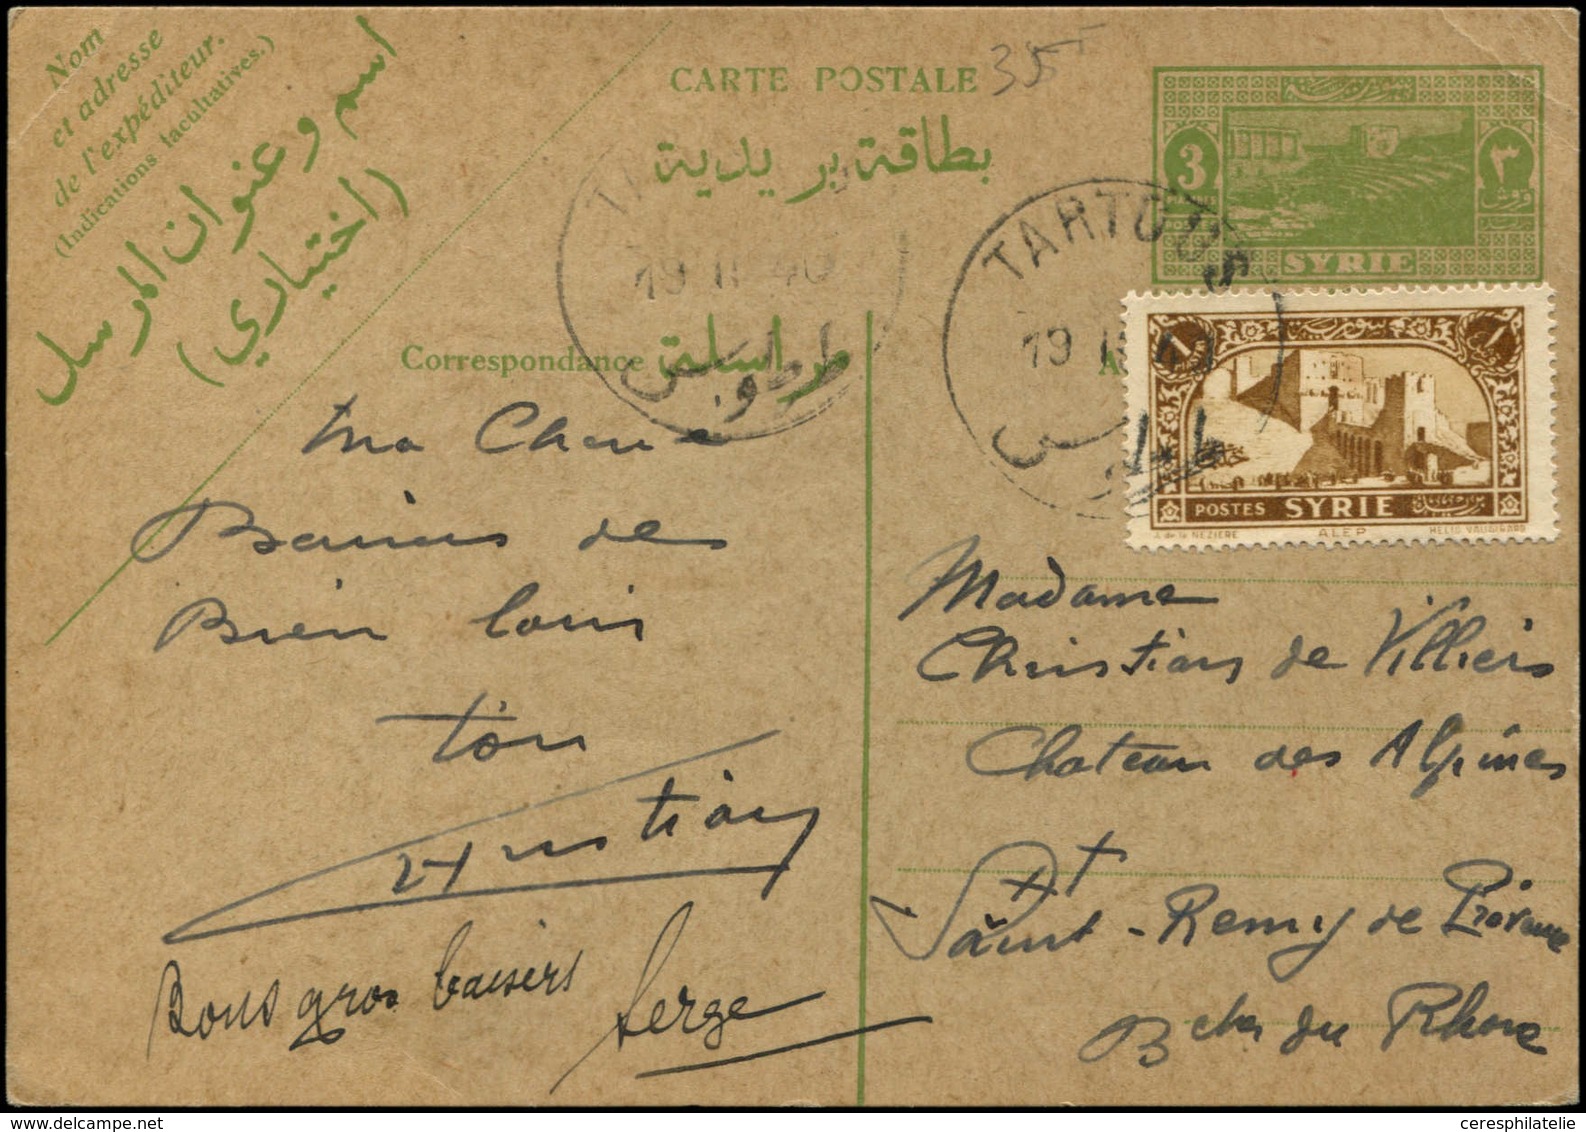 Nom
et adresse
de l'expéditeur.
(Indications facultatives.)
اسم وعنوان المرسل
(اختياري)
CARTE POSTALE
355
بطاقة بريدية
سورية
3
٣
SYRIE
TARTOUS
19 II 40
طرطوس
TARTOUS
19 II 40
طرطوس
Correspondance مراسلة
A
POSTES SYRIE
J. de la NEZIERE ALEP HELIO VAUGIRARD
Ma Cherie
Baisers des
Bien loin
ton
Christian
Bons gros baisers
Serge
Madame
Christian de Villiers
Chateau des Alpines
Saint-Remy de Provence
B ches du Rhone
ceresphilatelie